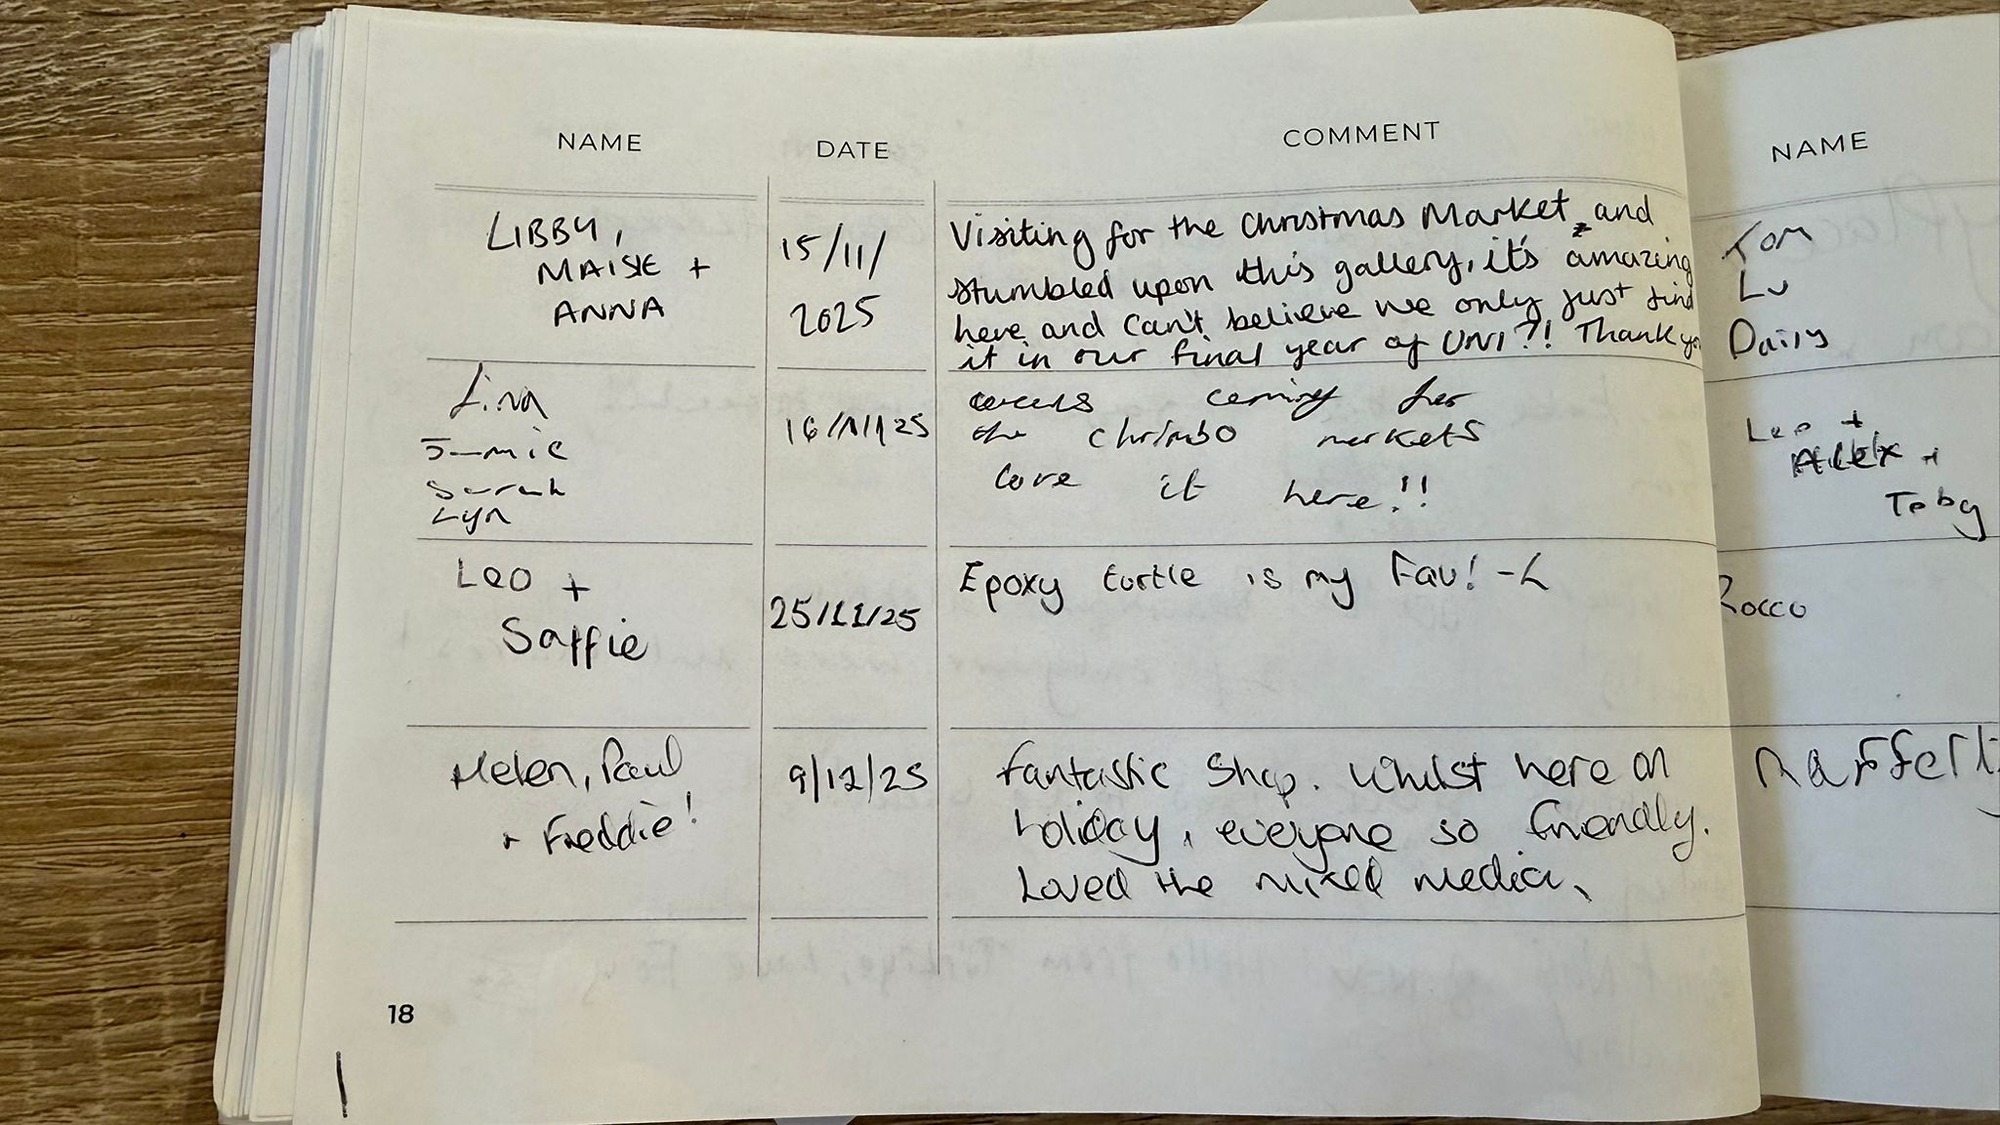 NAME DATE COMMENT
LIBBY,
MAISIE +
ANNA
15/11/
2025
Visiting for the Christmas Market, and
stumbled upon this gallery, it's amazing
here and can't believe we only just find
it in our final year of UNI?! Thank you
Lina
Jamie
Sarah
Lyn
16/11/25
coming for
the chrimbo markets
Love it here!!
Leo +
Saffie
25/11/25
Epoxy turtle is my Fav! -L
Helen, Paul
+ Freddie!
9/12/25
Fantastic Shop. Whilst here on
holiday, everyone so friendly.
Loved the mixed media.
18
NAME
Tom
Lu
Daisy
Leo +
Alex +
Toby
Rocco